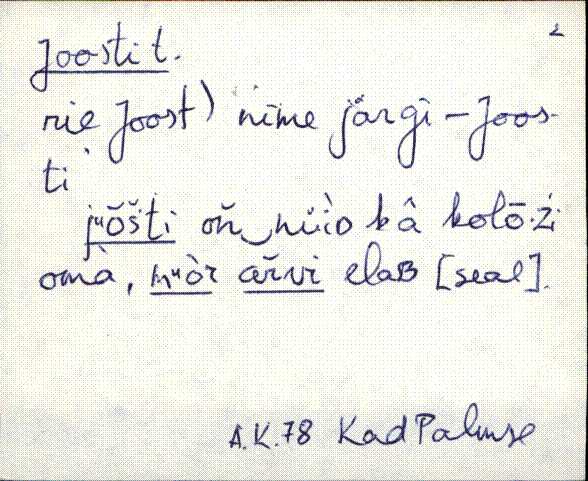 2
Joosti t.
rie Joost) nime järgi – Joos-
ti
jᵘõ̆š̆ti on̆‿nüìo kâ kolō·ź
omà, nᵘòr ar̆vi elaʙ [seal].
A.K. 78 Kad Palmse